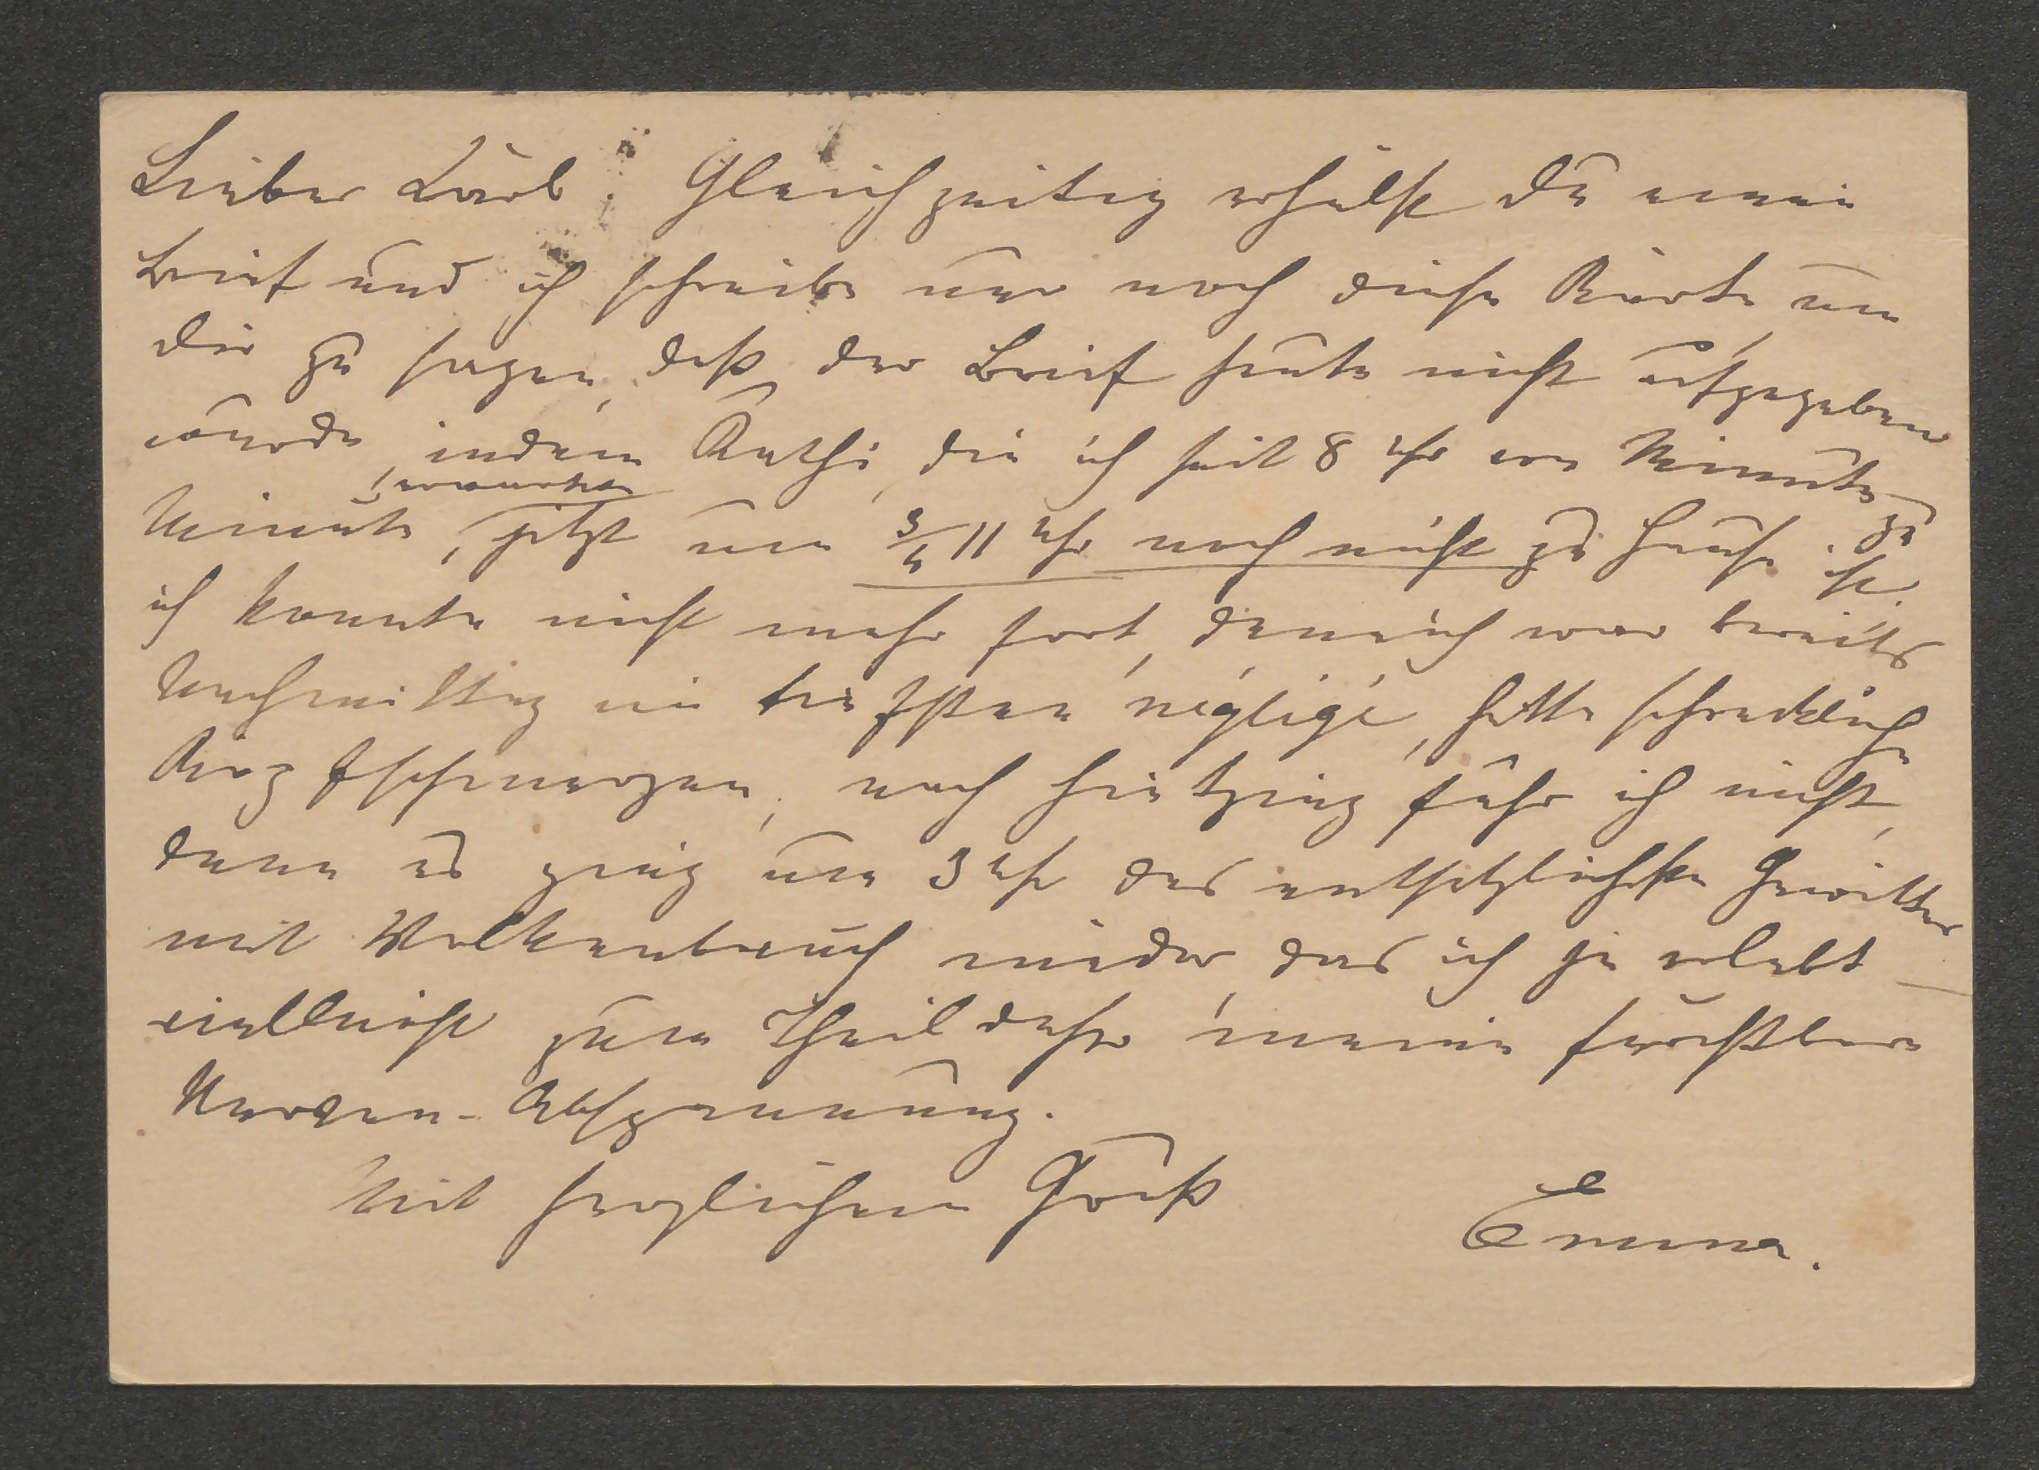 Lieber Karl! Gleichzeitig erhälst Du einen
Brief und ich schreibe nur noch diese Karte, um
Dir zu sagen, daß der Brief heute nicht aufgegeben
wurde, indem Kathi, die ich seit 8 Uhr von Minute zu
Minute erwarte, jetzt um 3/4 11 Uhr noch nicht zu Hause ist.
ich konnte nicht mehr fort, denn ich war bereits
Nachmittag im tiefsten négligé, hatte schreckliche
Kopfschmerzen, nach Hietzing fuhr ich nicht,
denn es ging um 3 Uhr das entsetzlichste Gewitter
mit Wolkenbruch nieder, das ich je erlebt –
vielleicht zum Theil daher meine furchtbare
Nerven-Abspannung.
Mit herzlichem Gruß
Emma.